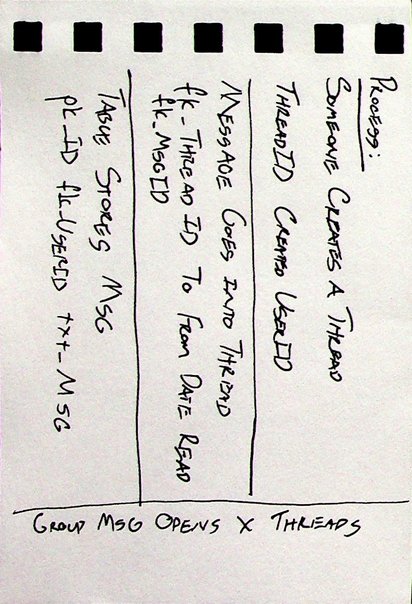 PROCESS:
SOMEONE CREATES A THREAD
THREADID CREATED USERID
MESSAGE GOES INTO THREAD
fk_THREAD ID TO FROM DATE READ
fk_MSGID
TABLE STORES MSG
pk_ID fk_USERID txt_MSG
GROUP MSG OPENS X THREADS